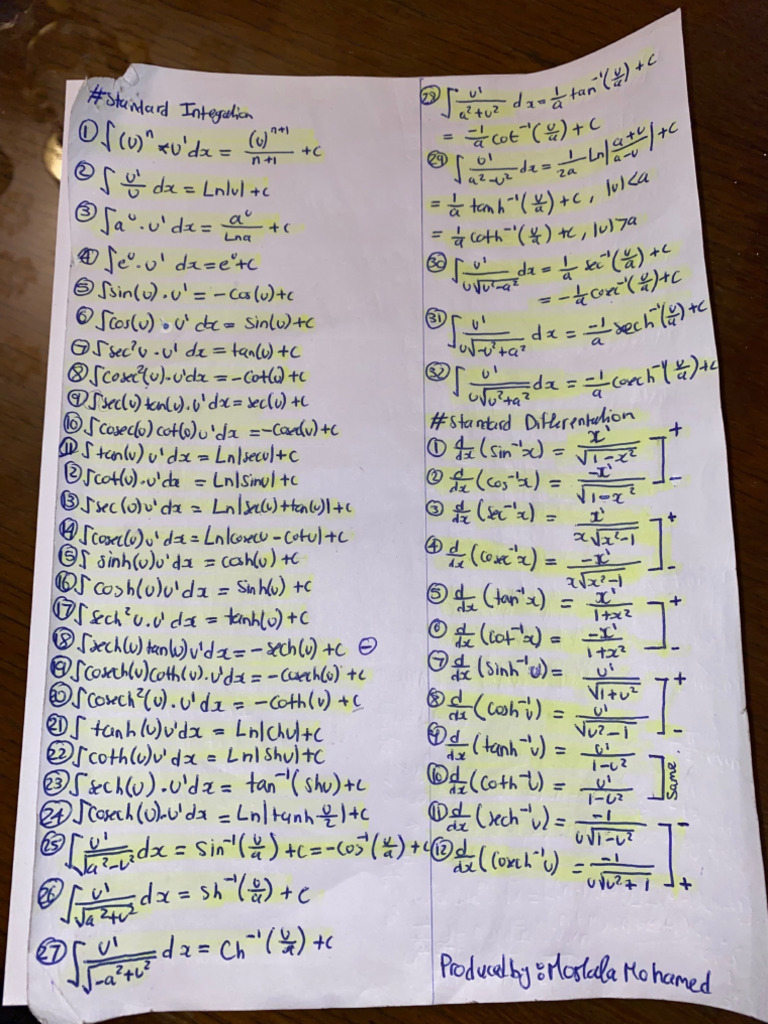 #Standard Integration
① ∫(u)ⁿ * u' dx = (u)ⁿ⁺¹/n+1 + c
② ∫ u'/u dx = Ln|u| + c
③ ∫ aᵘ · u' dx = aᵘ/Lna + c
④ ∫eᵘ · u' dx = eᵘ + c
⑤ ∫sin(u) · u' = -cos(u) + c
⑥ ∫cos(u) · u' dx = sin(u) + c
⑦ ∫sec²u · u' dx = tan(u) + c
⑧ ∫cosec²(u) · u' dx = -cot(u) + c
⑨ ∫sec(u) tan(u) · u' dx = sec(u) + c
⑩ ∫cosec(u) cot(u) u' dx = -cosec(u) + c
⑪ ∫tan(u) u' dx = Ln|secu| + c
⑫ ∫cot(u) · u' dx = Ln|sinu| + c
⑬ ∫sec(u) u' dx = Ln|sec(u) + tan(u)| + c
⑭ ∫cosec(u) u' dx = Ln|cosecu - cotu| + c
⑮ ∫ sinh(u) u' dx = cosh(u) + c
⑯ ∫ cosh(u) u' dx = sinh(u) + c
⑰ ∫ sech²u · u' dx = tanh(u) + c
⑱ ∫sech(u) tan(u) u' dx = -sech(u) + c ⊖
⑲ ∫cosech(u) coth(u) · u' dx = -cosech(u) + c
⑳ ∫cosech²(u) · u' dx = -coth(u) + c
㉑ ∫ tanh(u) u' dx = Ln|chu| + c
㉒ ∫coth(u) u' dx = Ln|shu| + c
㉓ ∫sech(u) · u' dx = tan⁻¹(shu) + c
㉔ ∫cosech(u) · u' dx = Ln|tanh u/2| + c
㉕ ∫ u'/√(a²-u²) dx = sin⁻¹(u/a) + c = -cos⁻¹(u/a) + c
㉖ ∫ u'/√(a²+u²) dx = sh⁻¹(u/a) + c
㉗ ∫ u'/√(-a²+u²) dx = Ch⁻¹(u/a) + c
㉘ ∫ u'/(a²+u²) dx = 1/a tan⁻¹(u/a) + c
= -1/a cot⁻¹(u/a) + c
㉙ ∫ u'/(a²-u²) dx = 1/2a Ln|a+u/a-u| + c
= 1/a tanh⁻¹(u/a) + c, |u|<a
= 1/a coth⁻¹(u/a) + c, |u|>a
㉚ ∫ u'/u√(u²-a²) dx = 1/a sec⁻¹(u/a) + c
= -1/a cosec⁻¹(u/a) + c
㉛ ∫ u'/u√(-u²+a²) dx = -1/a sech⁻¹(u/a) + c
㉜ ∫ u'/u√(u²+a²) dx = -1/a cosech⁻¹(u/a) + c
#Standard Differentation
① d/dx (sin⁻¹x) = x'/√(1-x²) +
② d/dx (cos⁻¹x) = -x'/√(1-x²) -
③ d/dx (sec⁻¹x) = x'/x√(x²-1) +
④ d/dx (cosec⁻¹x) = -x'/x√(x²-1) -
⑤ d/dx (tan⁻¹x) = x'/1+x² +
⑥ d/dx (cot⁻¹x) = -x'/1+x² -
⑦ d/dx (sinh⁻¹u) = u'/√(1+u²) +
⑧ d/dx (cosh⁻¹u) = u'/√(u²-1) -
⑨ d/dx (tanh⁻¹u) = u'/1-u²
⑩ d/dx (coth⁻¹u) = u'/1-u²
Same.
⑪ d/dx (sech⁻¹u) = -1/u√(1-u²) -
⑫ d/dx (cosech⁻¹u) = -1/u√(u²+1) +
Produced by: Mostafa Mohamed